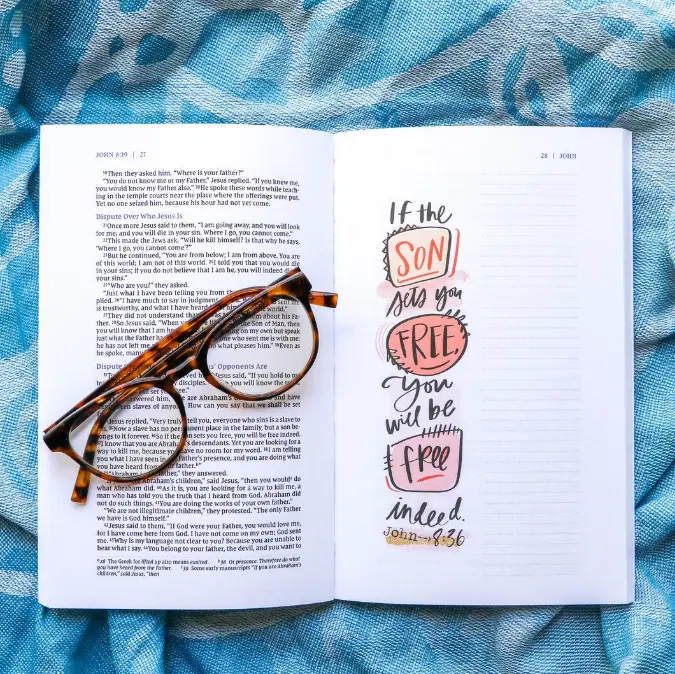 JOHN 8:19 | 27
19Then they asked him, "Where is your father?"
"You do not know me or my Father," Jesus replied. "If you knew me,
you would know my Father also." 20He spoke these words while teach-
ing in the temple courts near the place where the offerings were put.
Yet no one seized him, because his hour had not yet come.
Dispute Over Who Jesus Is
21Once more Jesus said to them, "I am going away, and you will look
for me, and you will die in your sin. Where I go, you cannot come."
22This made the Jews ask, "Will he kill himself? Is that why he says,
'Where I go, you cannot come'?"
23But he continued, "You are from below; I am from above. You are
of this world; I am not of this world. 24I told you that you would die
in your sins; if you do not believe that I am he, you will indeed die
your sins."
25"Who are you?" they asked.
"Just what I have been telling you from the
plied. 26"I have much to say in judgment sent me
is trustworthy, and what I have heard
27They did not understand that was about his Fa-
ther. 28So Jesus said, "When the Son of Man, then
you will know that I am on my own but speak
just what the Father who sent me is with me;
he has not left me what pleases him." 30Even as
he spoke, many
Dispute s' Opponents Are
Jesus said, "If you hold to m
disciples. you will know the
set
and have
slaves of How can you say that we shall be
set
Jesus replied, "Very you, everyone who sins is a slave to
Now a slave has no place in the family, but a son be-
longs to it forever. 36So if the sets you free, you will be free indeed.
I know that you are Abraham's descendants. Yet you are looking for a
way to kill me, because you have no room for my word. 38I am telling
you what I have seen in Father's presence, and you are doing what
you have heard from father."
"Abraham is father," they answered.
Abraham's children," said Jesus, "then you would do
what Abraham did. 40As it is, you are looking for a way to kill me, a
man who has told you the truth that I heard from God. Abraham did
not do such things. 41You are doing the works of your own father."
"We are not illegitimate children," they protested. "The only Father
we have is God himself."
42Jesus said to them, "If God were your Father, you would love me,
for I have come here from God. I have not come on my own; God sent
me. 43Why is my language not clear to you? Because you are unable to
hear what I say. 44You belong to your father, the devil, and you want to
28 The Greek for lifted up also means exalted. 38 Or presence. Therefore do what
you have heard from the Father. 39 Some early manuscripts "If you are Abraham's
children," said Jesus, "then
28 | JOHN
If the
SON
sets you
FREE,
you
will be
free
indeed.
John 8:36